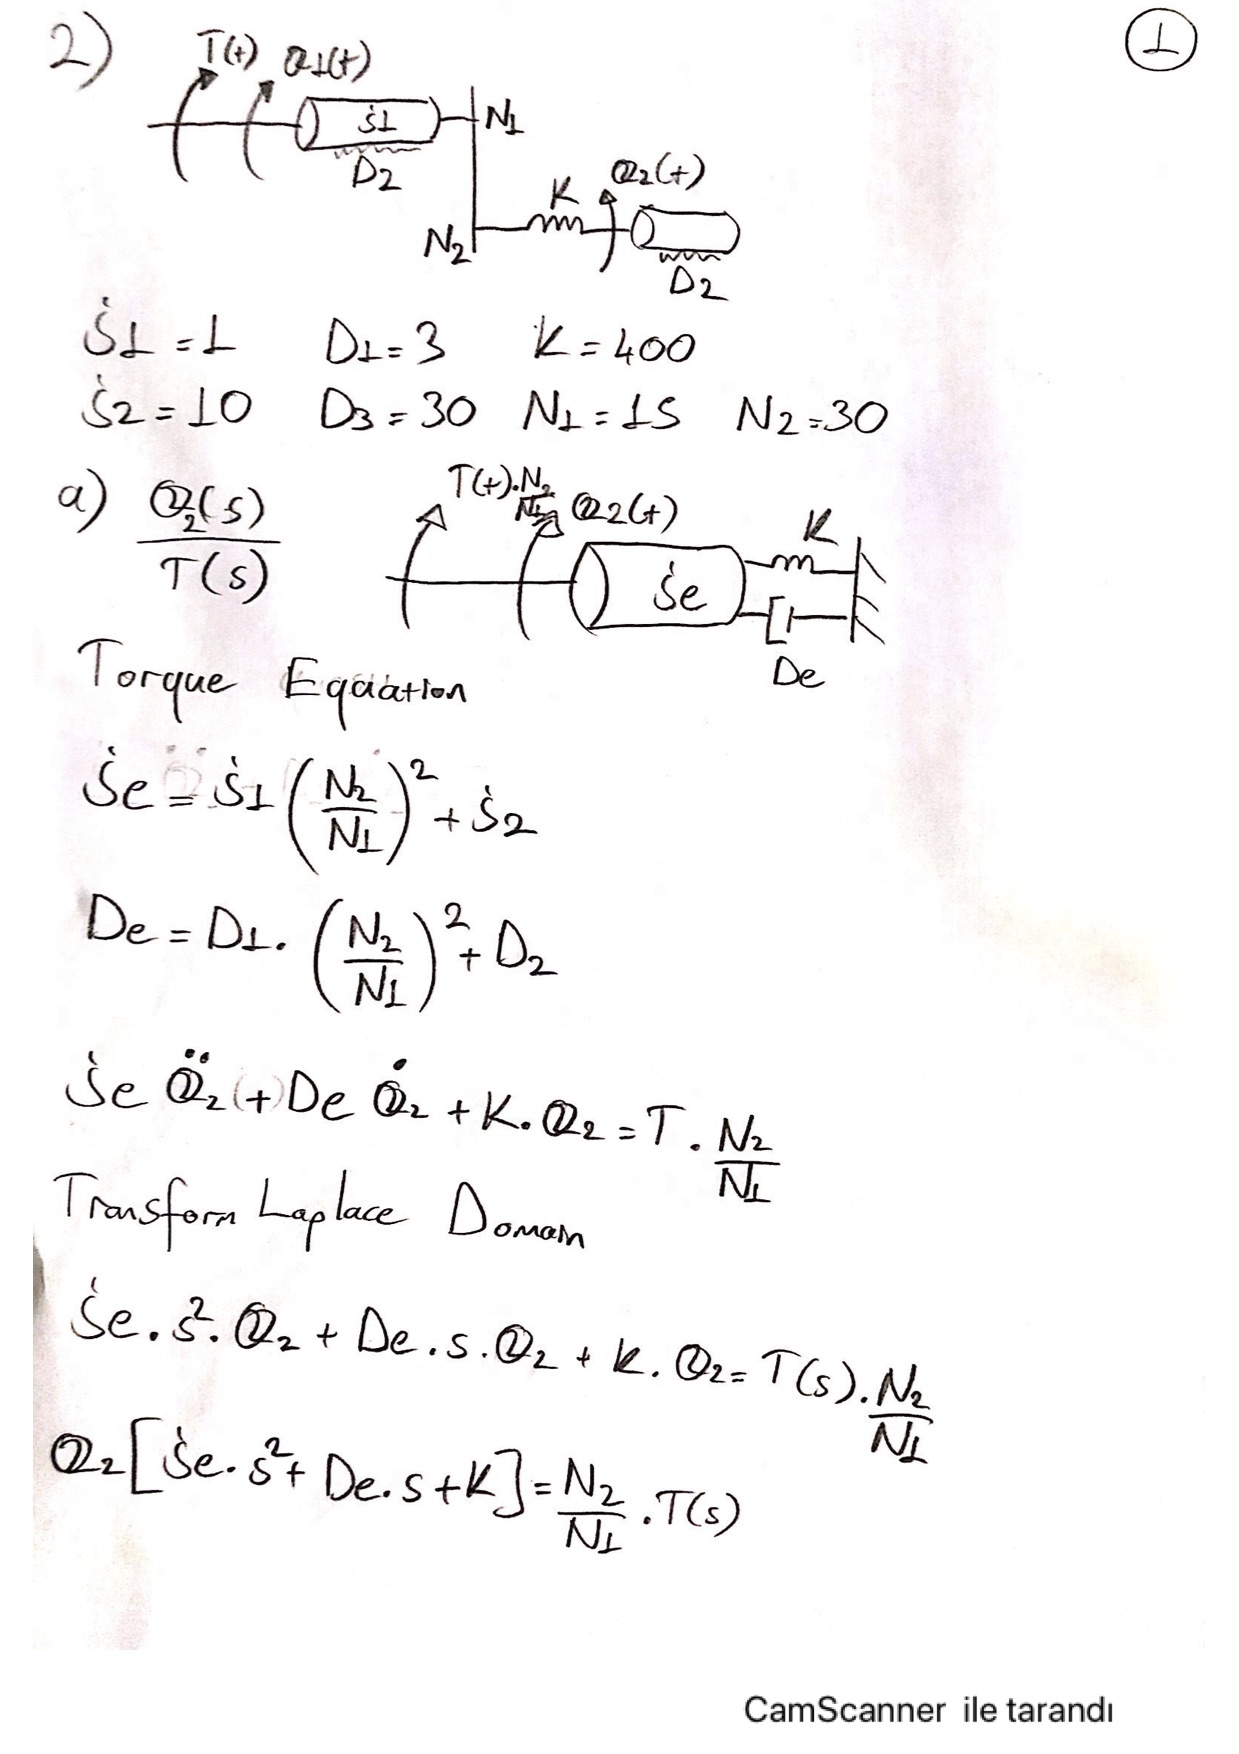 2)
1
T(t) θ1(t)
J1
N1
D2
K θ2(t)
N2
D2
J1 = 1 D1 = 3 K = 400
J2 = 10 D3 = 30 N1 = 15 N2 = 30
a) θ2(s) / T(s)
T(t).N2/N1 θ2(t) K
Je
De
Torque Equation
Je = J1 (N2/N1)² + J2
De = D1. (N2/N1)² + D2
Je θ̈2 + De θ̇2 + K. θ2 = T . N2/N1
Transform Laplace Domain
Je. s². θ2 + De . s . θ2 + K. θ2 = T(s). N2/N1
θ2 [Je. s² + De. s + K] = N2/N1 . T(s)
CamScanner ile tarandı